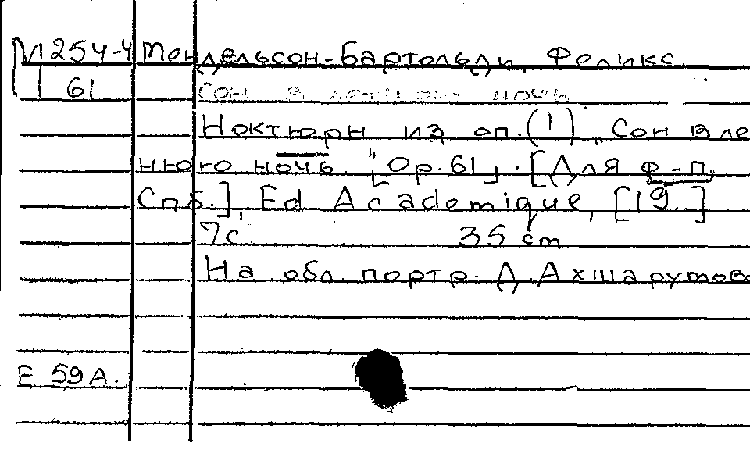 М 254-4 Мендельсон-Бартольди, Феликс
61 Сон в летнюю ночь
Ноктюрн из оп. (1) „Сон в ле
тнюю ночь "Op. 61". [Для ф-п.
Спб.], Ed Academique, [19 ]
7с. 35 cm
На обл. портр. Д. Ахшарумов
E 59A.